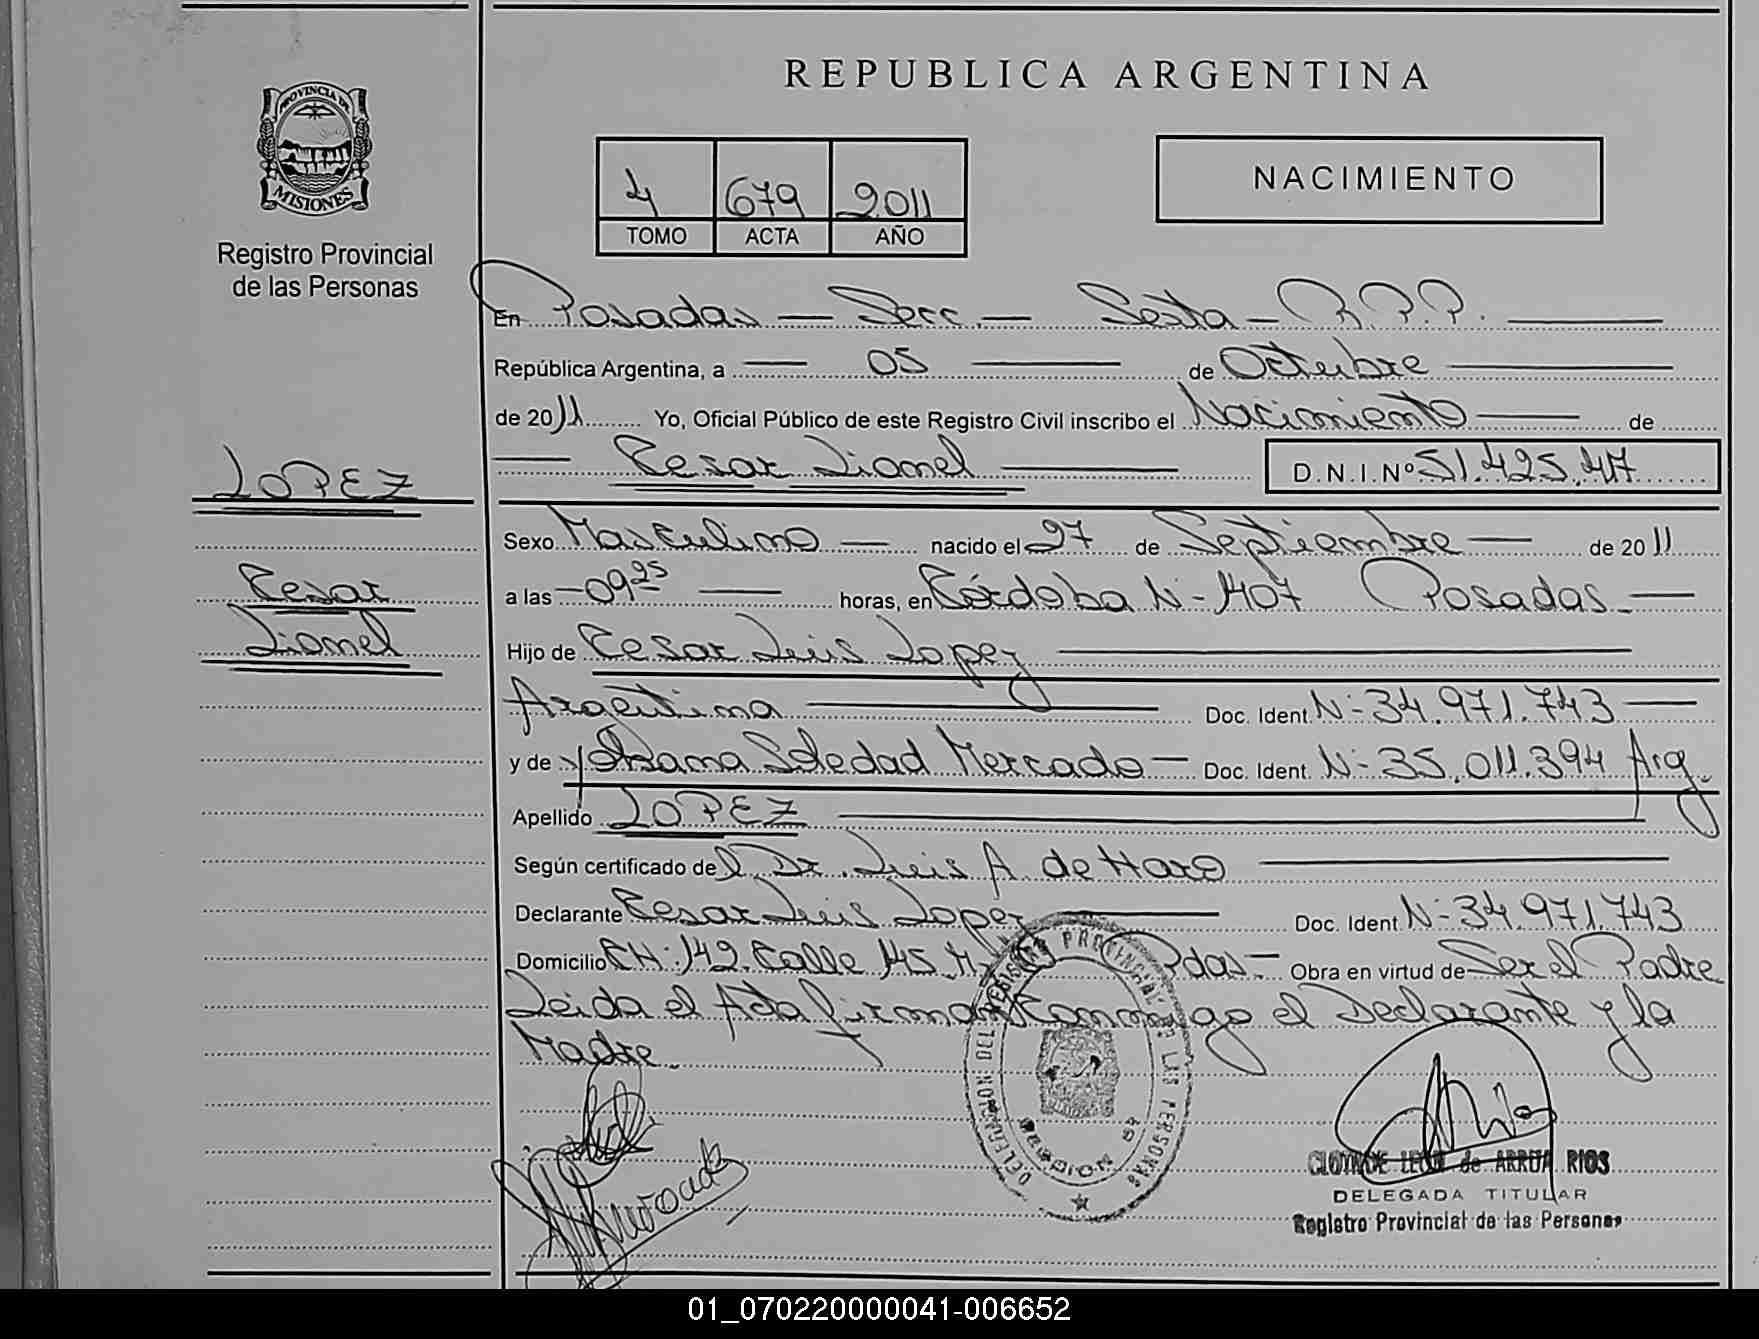 REPUBLICA ARGENTINA
PROVINCIA DE
MISIONES
Registro Provincial
de las Personas
4 679 2011
TOMO ACTA AÑO
NACIMIENTO
En Posadas — Secc. — Sexta — R.P.P.
República Argentina, a 05 de Octubre
de 2011 Yo, Oficial Público de este Registro Civil inscribo el Nacimiento de
Cesar Lionel D.N.I.Nº 51.425.47
LOPEZ
Cesar
Lionel
Sexo Masculino nacido el 27 de Septiembre de 2011
a las 09 25 horas, en Córdoba N- 1407 Posadas
Hijo de Cesar Luis Lopez
Argentina Doc. Ident. N- 34.971.743
y de Soledad Mercado Doc. Ident. N- 35.011.394 Arg.
Apellido LOPEZ
Según certificado del Dr. Luis A. de Haro
Declarante Cesar Luis Lopez Doc. Ident. N- 34.971.743
Domicilio CH: 142 Calle 145 Pdas Obra en virtud de Ser el Padre
Leida el Acta firman Conmigo el Declarante y la
Madre.
DELEGACION DEL REGISTRO PROVINCIAL DE LAS PERSONAS
de ARRUA RIOS
DELEGADA TITULAR
Registro Provincial de las Personas
01_070220000041-006652